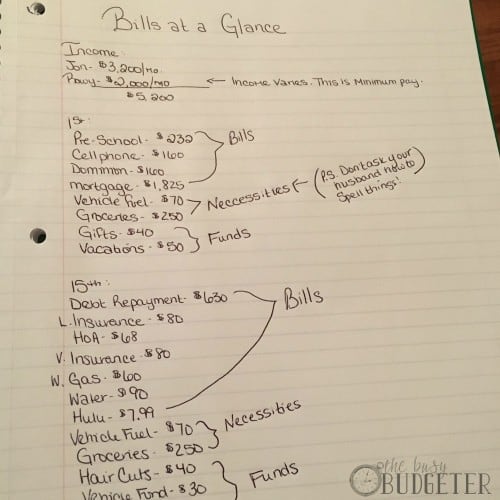 Bills at a Glance
Income:
Jon- $3,200/mo.
$2,000/mo ← Income varies. This is minimum pay.
$5,200
1st:
Pre-School- $232
Bills
Cellphone- $160
Dominion- $160
mortgage- $1,825
Vehicle Fuel- $70
Neccessities ← (P.S. Don't ask your husband how to spell things!)
Groceries- $250
Gifts- $40
Funds
Vacations- $50
15th:
Debt Repayment- $630
Bills
L. Insurance- $80
HOA- $68
V. Insurance- $80
W. Gas- $60
Water- $90
Hulu- $7.99
Vehicle Fuel- $70
Necessities
Groceries- $250
Hair Cuts- $40
Funds
Vehicle Fund- $30
the busy
BUDGETER